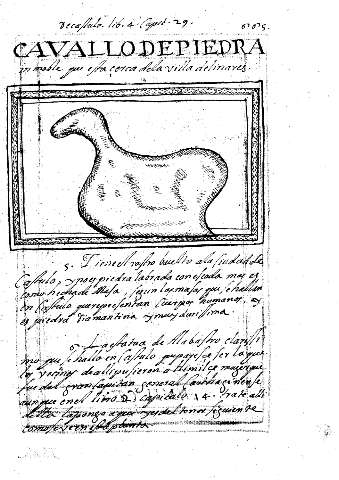 De castulo lib. 4 Capit. 29.
CAVALLO DE PIEDRA
in moble que esta cerca de la villa de linares.
5. Tiene el rostro buelto a la ciudad de
Castulo, y no es piedra labrada con escoda mas es
como hecha de Masa, segun los masas que se hallan
en Castulo que representan cuerpos humanos, y
es piedra diamantina y muy durissima.
6. La estatua de Alabastro clarissi
mo que se hallo en Castulo que parese ser la que
los vecinos de alli pusieron a Himilce muger que
fue del gran capitan general Cartaginense
aunque en el libro 2 capitulo 14. trate alli
de ella la pongo aqui
como se ve